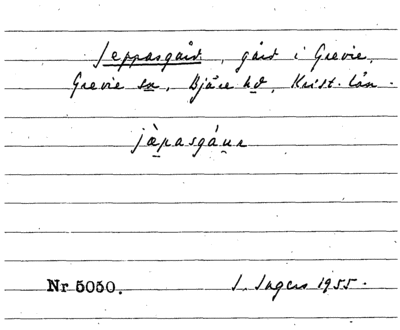 Jeppasgård, gård i Grevie,
Grevie sn, Bjäre hd, Krist. län.
jæ̀pasgáu̯r
Nr 5050.
I. Ingers 1955.